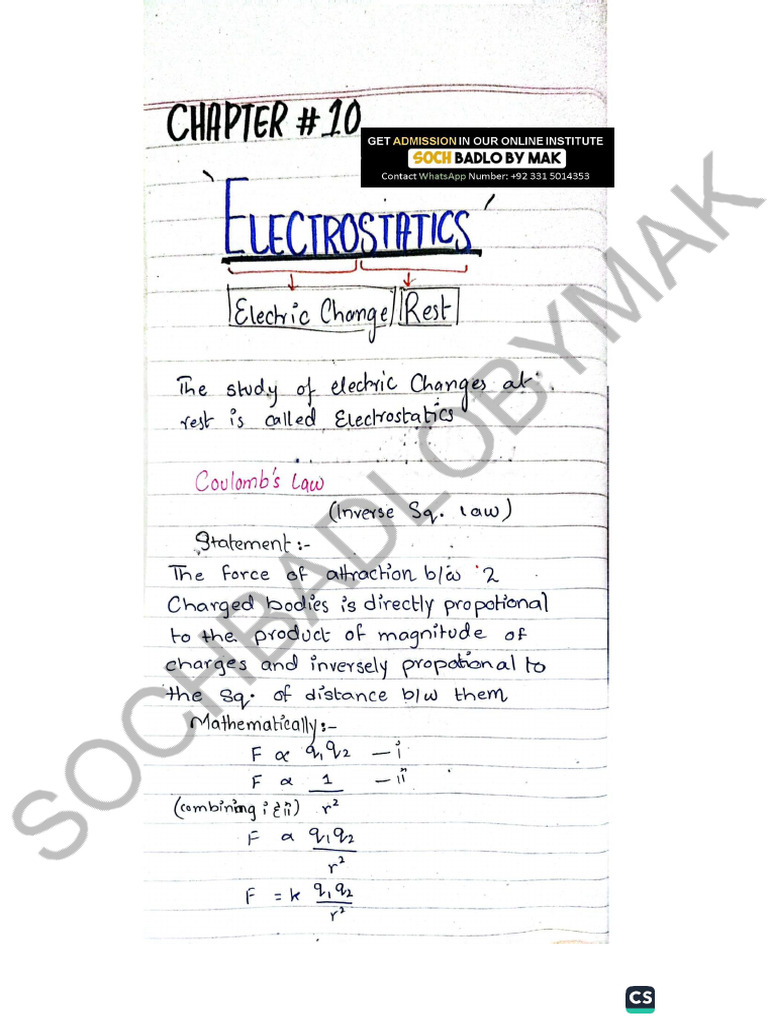 CHAPTER # 10
GET ADMISSION IN OUR ONLINE INSTITUTE
SOCH BADLO BY MAK
Contact WhatsApp Number: +92 331 5014353
'ELECTROSTATICS'
Electric Change Rest
The study of electric Changes at
rest is called Electrostatics
Coulomb's Law
(Inverse Sq. law)
Statement:-
The force of attraction b/w 2
Charged bodies is directly propotional
to the product of magnitude of
charges and inversely propotional to
the sq. of distance b/w them
Mathematically:-
F ∝ q₁q₂ — i
F ∝ 1/r² — ii
(combining i & ii)
F ∝ q₁q₂/r²
F = k q₁q₂/r²
SOCHBADLOBYMAK
CS